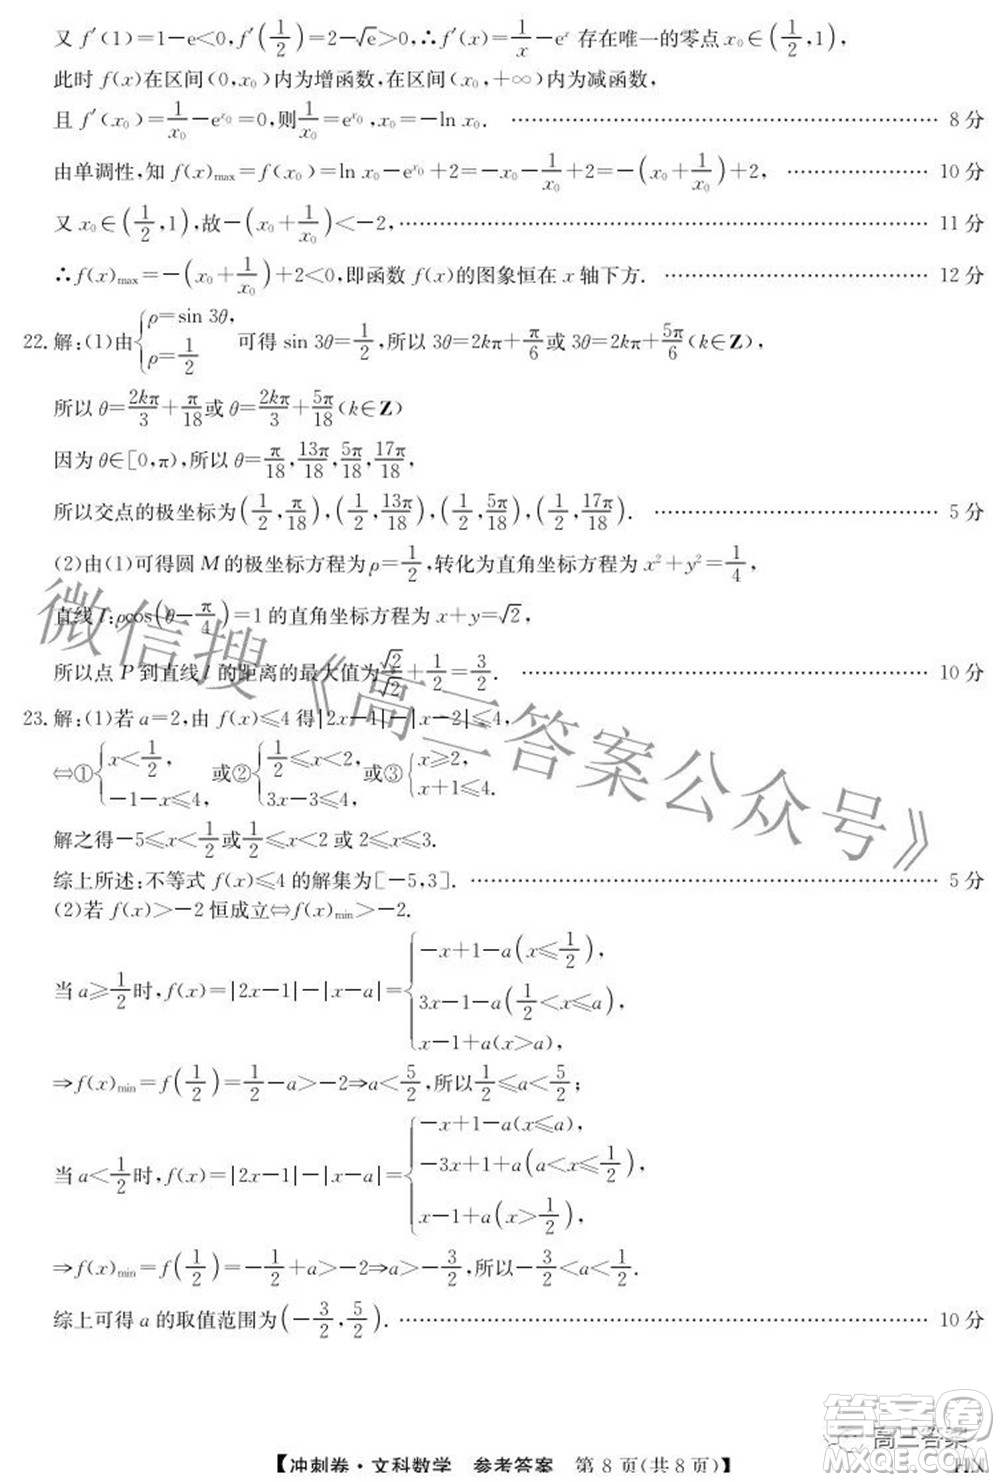 又 f′(1)=1−e<0, f′(1/2)=2−√e>0, ∴f′(x)=1/x−eˣ 存在唯一的零点 x₀∈(1/2,1),
此时 f(x)在区间(0,x₀)内为增函数,在区间(x₀,+∞)内为减函数,
且 f′(x₀)=1/x₀−e^{x₀}=0,则1/x₀=e^{x₀},x₀=−ln x₀. …… 8分
由单调性,知 f(x)max=f(x₀)=ln x₀−e^{x₀}+2=−x₀−1/x₀+2=−(x₀+1/x₀)+2, …… 10分
又 x₀∈(1/2,1),故−(x₀+1/x₀)<−2, …… 11分
∴f(x)max=−(x₀+1/x₀)+2<0,即函数 f(x)的图象恒在 x 轴下方. …… 12分
22.解:(1)由{ρ=sin 3θ, ρ=1/2 可得 sin 3θ=1/2,所以 3θ=2kπ+π/6或 3θ=2kπ+5π/6(k∈Z),
所以 θ=2kπ/3+π/18或 θ=2kπ/3+5π/18(k∈Z)
因为 θ∈[0,π),所以 θ=π/18,13π/18,5π/18,17π/18,
所以交点的极坐标为(1/2,π/18),(1/2,13π/18),(1/2,5π/18),(1/2,17π/18). …… 5分
(2)由(1)可得圆 M 的极坐标方程为 ρ=1/2,转化为直角坐标方程为 x²+y²=1/4,
直线 l:ρcos(θ−π/4)=1 的直角坐标方程为 x+y=√2,
所以点 P 到直线 l 的距离的最大值为√2/√2+1/2=3/2. …… 10分
23.解:(1)若 a=2,由 f(x)≤4 得|2x−1|−|x−2|≤4,
⇔①{x<1/2, −1−x≤4, 或②{1/2≤x<2, 3x−3≤4, 或③{x≥2, x+1≤4.
解之得−5≤x<1/2或1/2≤x<2 或 2≤x≤3.
综上所述:不等式 f(x)≤4 的解集为[−5,3]. …… 5分
(2)若 f(x)>−2 恒成立⇔f(x)min>−2.
当 a≥1/2时,f(x)=|2x−1|−|x−a|={−x+1−a(x≤1/2), 3x−1−a(1/2<x≤a), x−1+a(x>a),
⇒f(x)min=f(1/2)=1/2−a>−2⇒a<5/2,所以1/2≤a<5/2;
当 a<1/2时,f(x)=|2x−1|−|x−a|={−x+1−a(x≤a), −3x+1+a(a<x≤1/2), x−1+a(x>1/2),
⇒f(x)min=f(1/2)=−1/2+a>−2⇒a>−3/2,所以−3/2<a<1/2.
综上可得 a 的取值范围为(−3/2,5/2). …… 10分
微信搜《高三答案公众号》
答案圈
高三答案
MXQE.COM
【冲刺卷·文科数学 参考答案 第 8 页(共 8 页)】